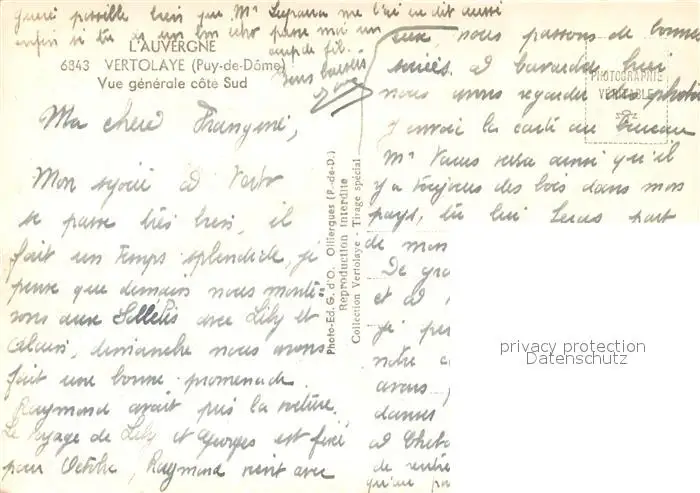 guéri possible bien que Mr me l'ai eu dit aussi
enfin si tu as un bon passe moi un
coup de fil.
Bons baisers
L'AUVERGNE
6843 VERTOLAYE (Puy-de-Dôme)
Vue générale côté Sud
Ma chère Frangine,
Mon séjour à Verto
se passe très bien, il
fait un temps splendide, je
pense que demain nous monte-
rons aux avec Lily et
Alain, dimanche nous avons
fait une bonne promenade
Raymond avait pris la voiture,
Le voyage de Lily et Georges est fixé
pour Octobre, Raymond vient avec
Photo-Ed. G. d'O. Olliergues (P.-de-D.)
Reproduction Interdite
Collection Vertolaye - Tirage spécial
eux, nous passons de bonnes
soirées à bavarder, hier
nous avons regardé les photos
PHOTOGRAPHIE
VÉRITABLE
J'envoie la carte au bureau
Mr verra aussi qu'il
y a toujours des bois dans mon
pays, tu lui feras part
de mon
De
et à
je
notre
avons
dans
à
de
qu'un
privacy protection
Datenschutz